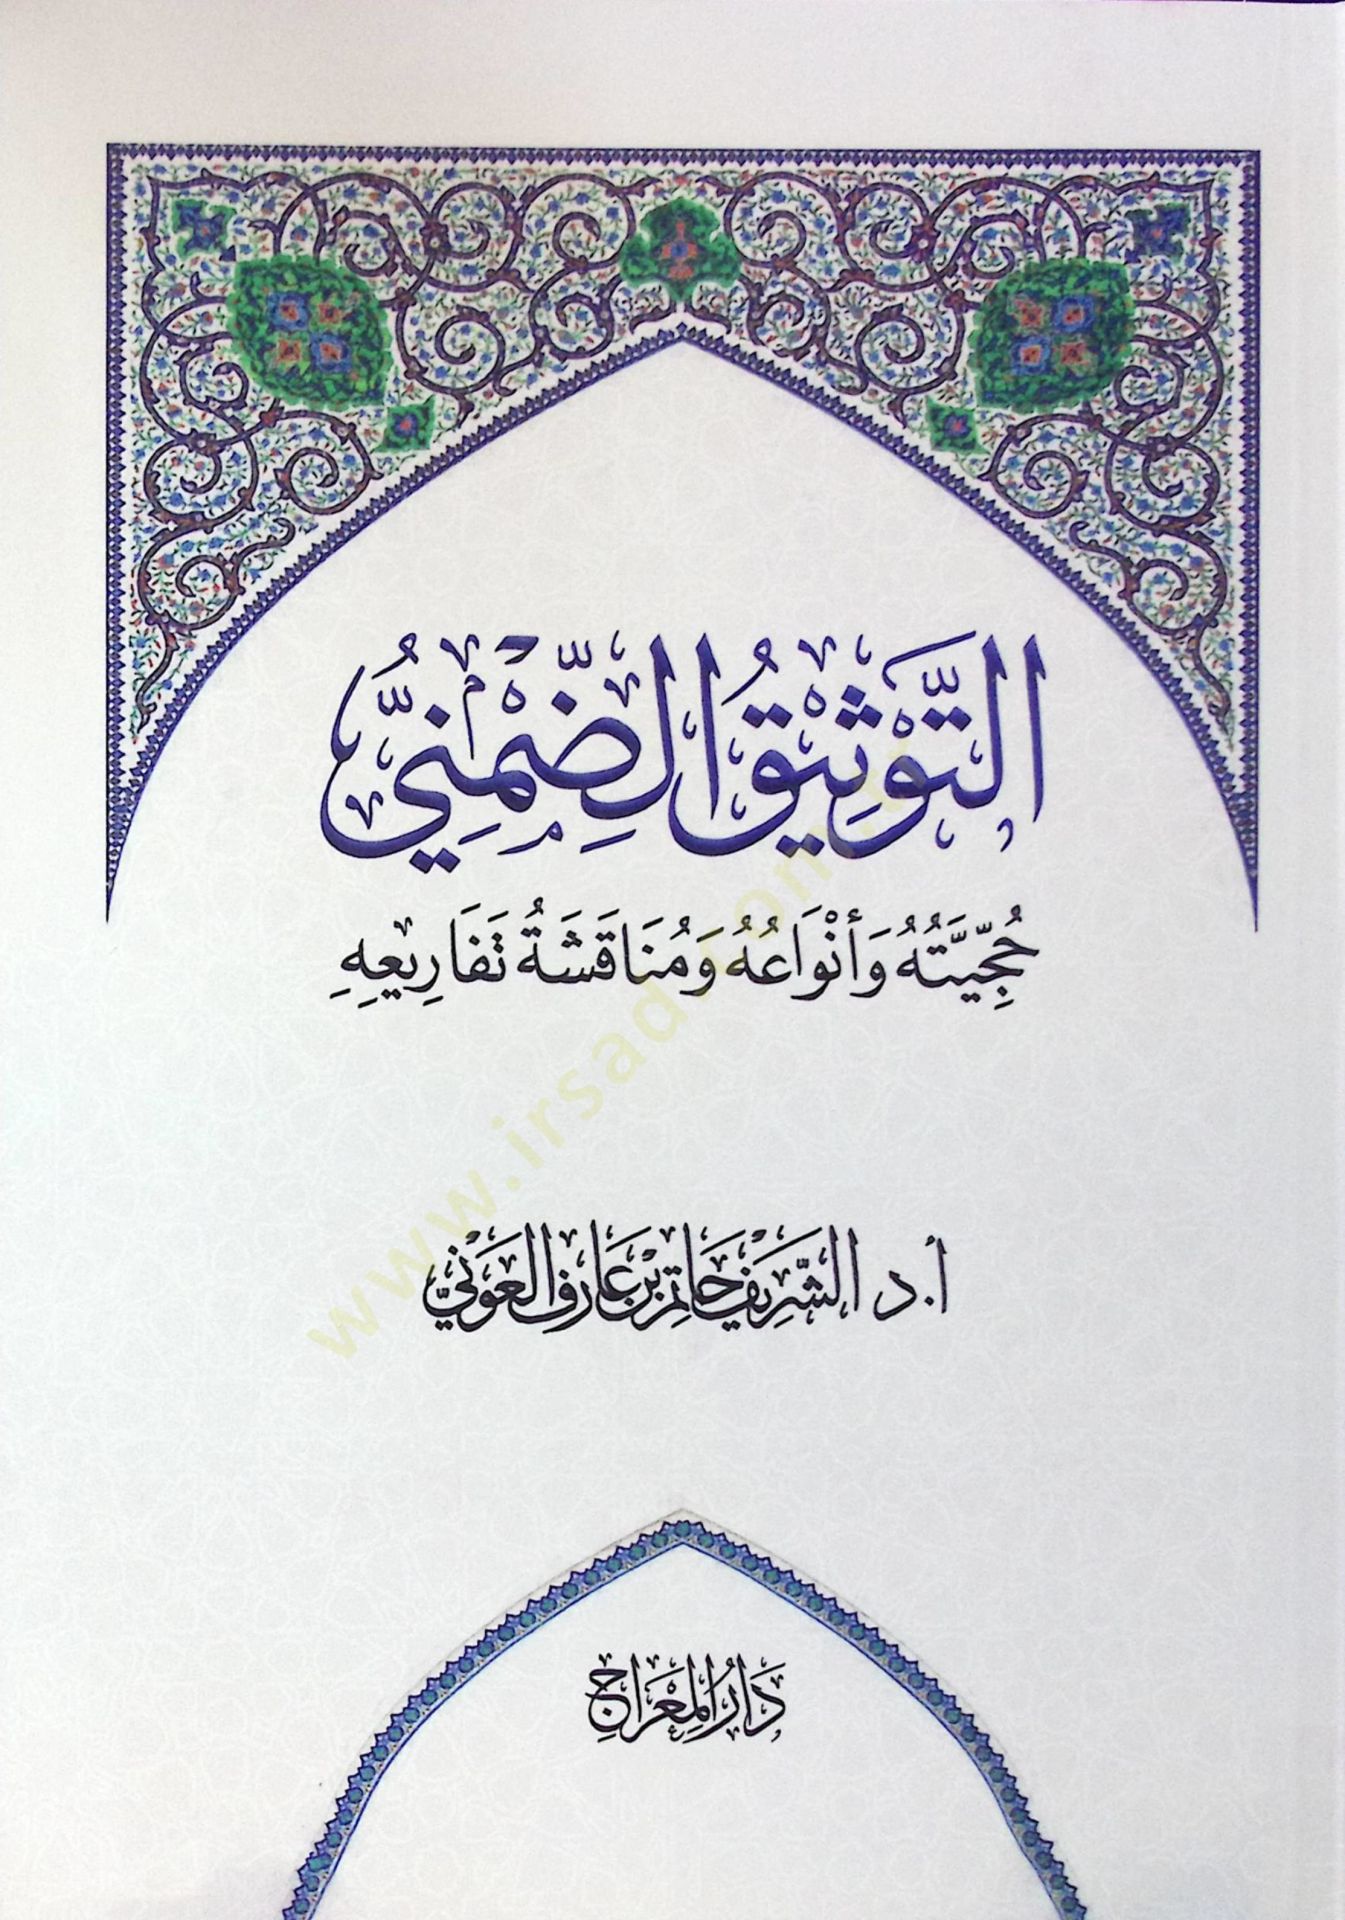 التَّوْثِيْقُ الضِّمْنِيُّ
حُجِّيَّتُهُ وَأَنْوَاعُهُ وَمُنَاقَشَةُ تَفَارِيعِهِ
أ.د الشَّرِيْف حَاتِم بْن عَارِف العَوْنِيّ
دَارُ المِعْرَاجِ